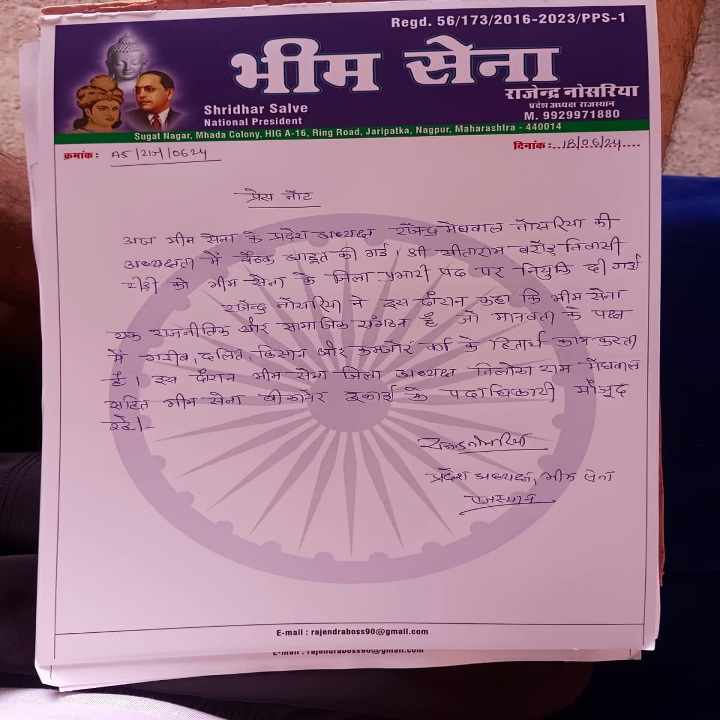 Regd. 56/173/2016-2023/PPS-1
भीम सेना
राजेन्द्र नोसरिया
प्रदेश अध्यक्ष राजस्थान
M. 9929971880
Shridhar Salve
National President
Sugat Nagar, Mhada Colony, HIG A-16, Ring Road, Jaripatka, Nagpur, Maharashtra - 440014
क्रमांक: AS/21/1/0624
दिनांक: 18/06/24
प्रेस नोट
आज भीम सेना के प्रदेश अध्यक्ष राजेन्द्र मेघवाल नोसरिया की
अध्यक्षता में बैठक आहूत की गई। श्री सीताराम निवासी
को भीम सेना के जिला प्रभारी पद पर नियुक्ति दी गई
राजेन्द्र नोसरिया ने इस दौरान कहा कि भीम सेना
एक राजनीतिक और सामाजिक संगठन है जो मानवता के पक्ष
में गरीब, दलित, किसान और कमजोर वर्ग के हितार्थ काम करती
है। इस दौरान भीम सेना जिला अध्यक्ष त्रिलोका राम मेघवाल
सहित भीम सेना बीकानेर इकाई के पदाधिकारी मौजूद
रहे।-
प्रदेश अध्यक्ष, भीम सेना
राजस्थान
E-mail : rajendraboss90@gmail.com
E-mail : rajendraboss90@gmail.com